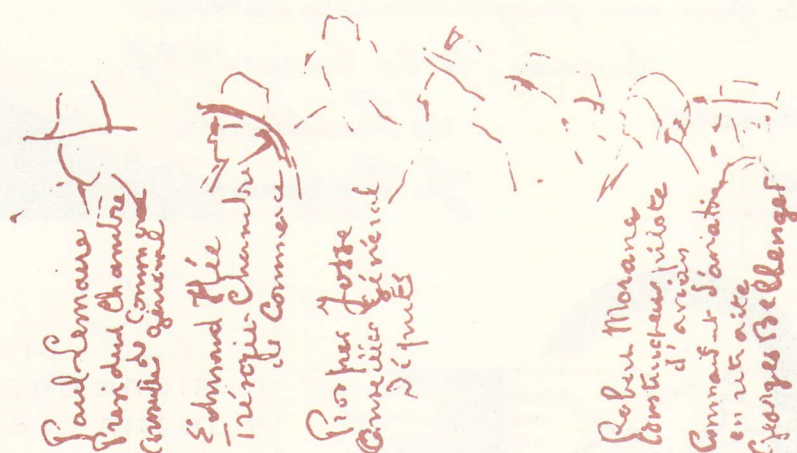 Paul Lemaire
President Chambre
de Commerce
Conseiller général
Edmond Hée
Trésorier Chambre
de Commerce
Prosper Josse
Conseiller Général
Députés
Robert Morane
Constructeur pilote
d'avions
Command t d'aviation
en retraite
Georges Bellenger